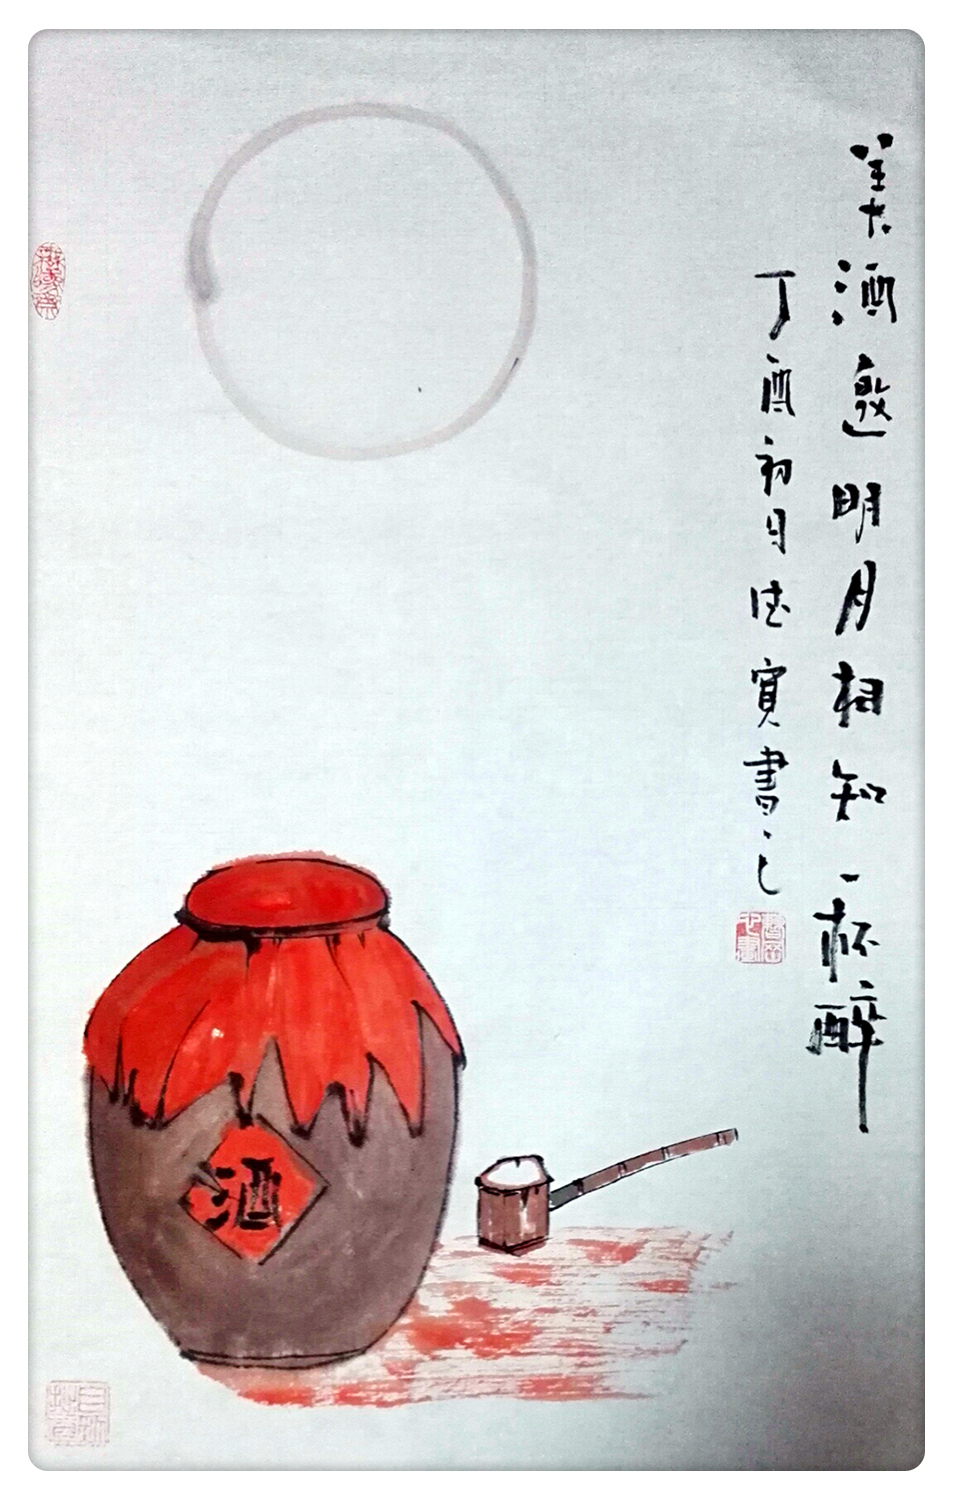 美酒邀明月相知一杯醉
丁酉初月德寶書之
酒